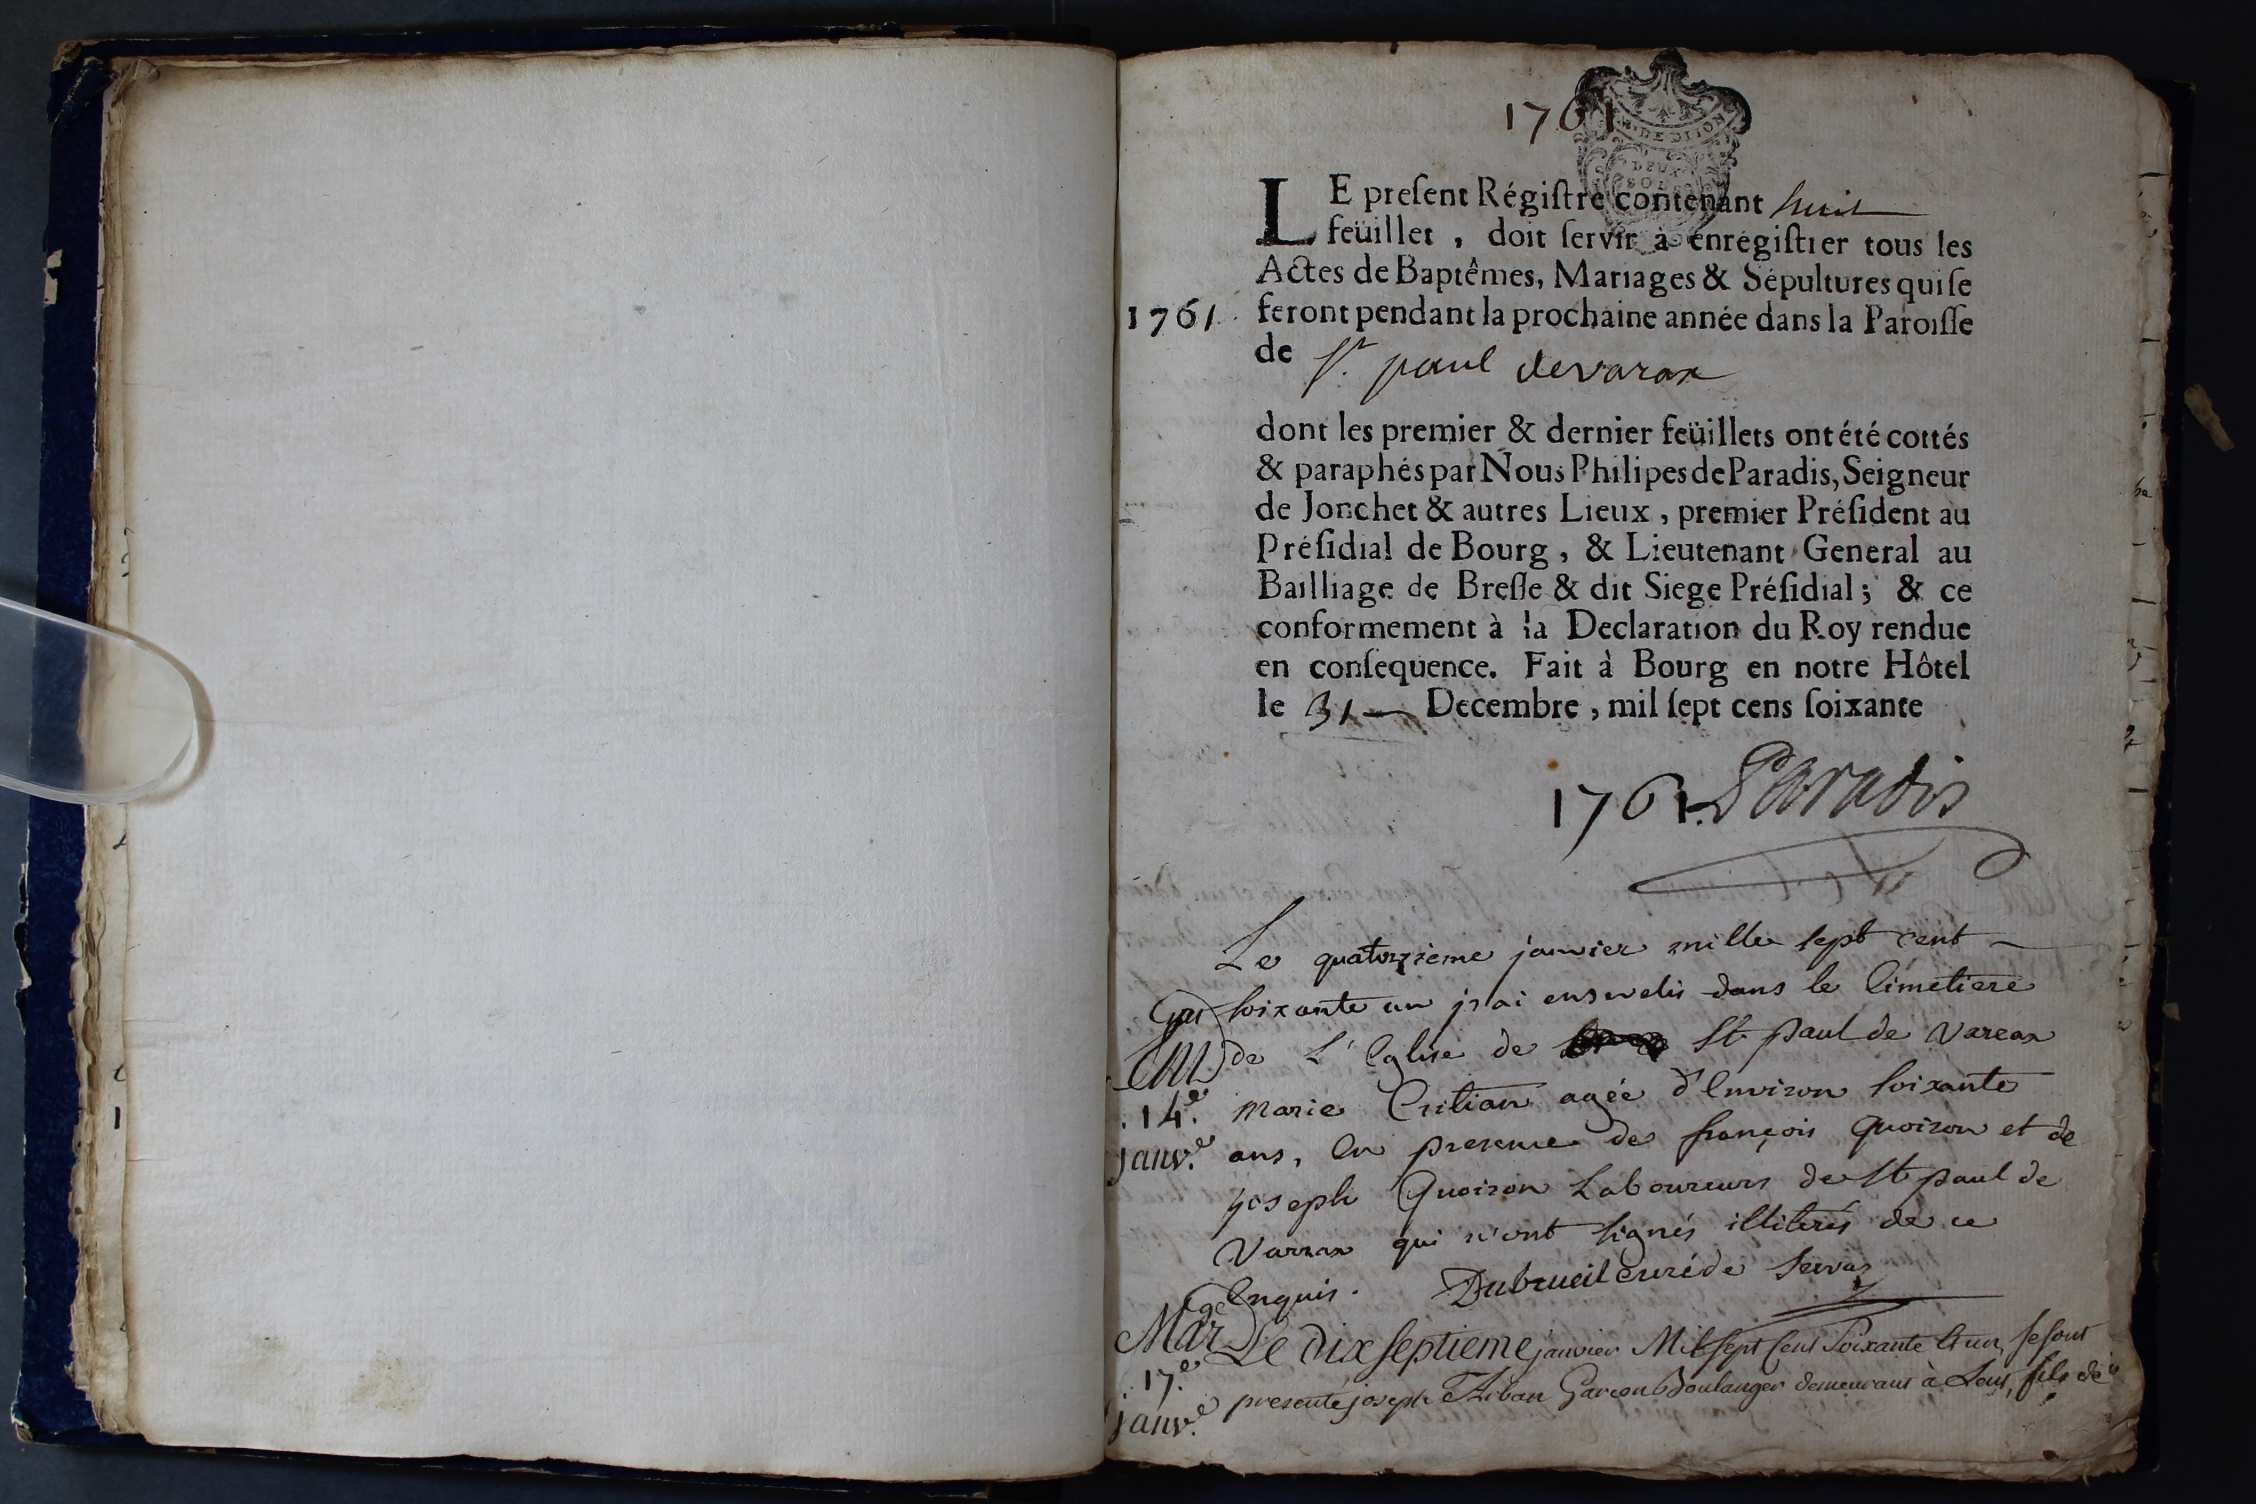 1761
G. DE DIJON
DEUX
SOLS
LE preſent Régiſtre contenant huit
feüillet , doit ſervir à enrégiſtrer tous les
Actes de Baptêmes, Mariages & Sépultures qui ſe
1761. feront pendant la prochaine année dans la Paroiſſe
de St. paul devarax
dont les premier & dernier feüillets ont été cottés
& paraphés par Nous Philipes de Paradis, Seigneur
de Jonchet & autres Lieux , premier Préſident au
Préſidial de Bourg , & Lieutenant General au
Bailliage de Breſſe & dit Siege Préſidial ; & ce
conformement à la Declaration du Roy rendue
en conſequence. Fait à Bourg en notre Hôtel
le 31 Decembre , mil ſept cens ſoixante
1761. Paradis
Le quatorzieme janvier mille sept cent
soixante un j'ai ensevelis dans le Cimetiere
de L'Eglise de St paul de Vareax
14.e marie Critian agée d'Environ soixante
janv.e ans, En presence de françois Quoiron et de
joseph Quoiron Laboureurs de St paul de
Varrax qui n'ont signés illiterés de ce
Enquis. Dubrueil curé de Servas
Marge Le dix septieme janvier Mil sept Cent Soixante Et un, se sont
17.e presenté joseph Garçon Boulanger demeurant à Lent, fils de
janv.e